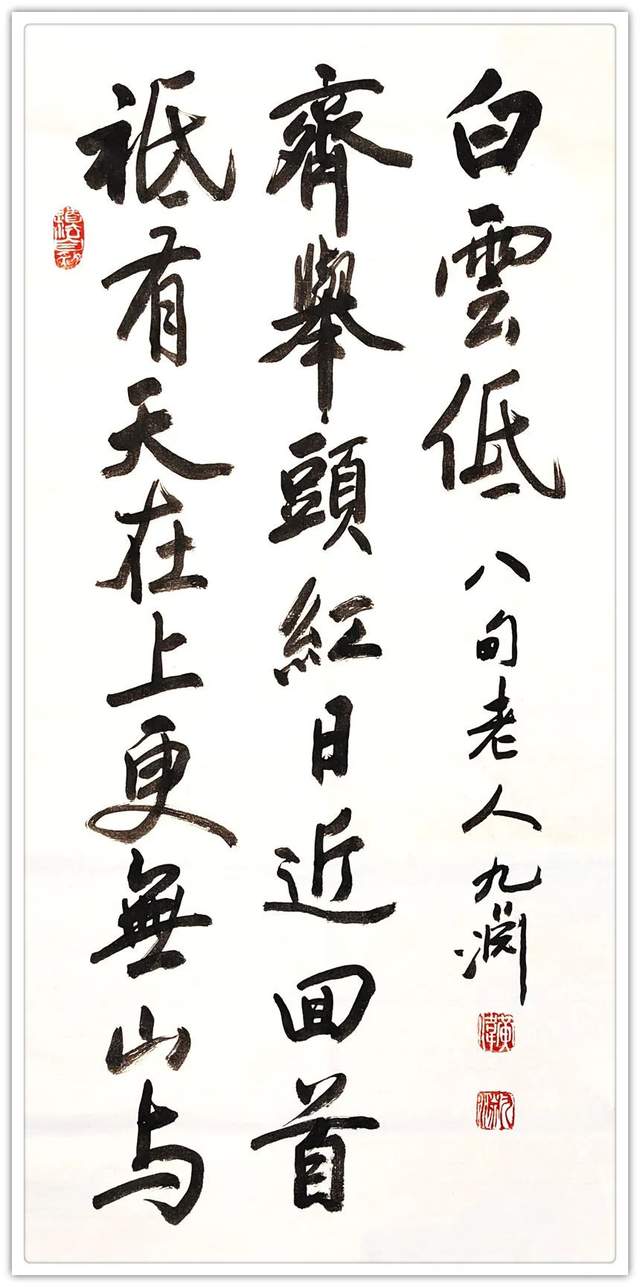 祗有天在上更無山与
齊舉頭紅日近回首
白雲低 八旬老人九渊